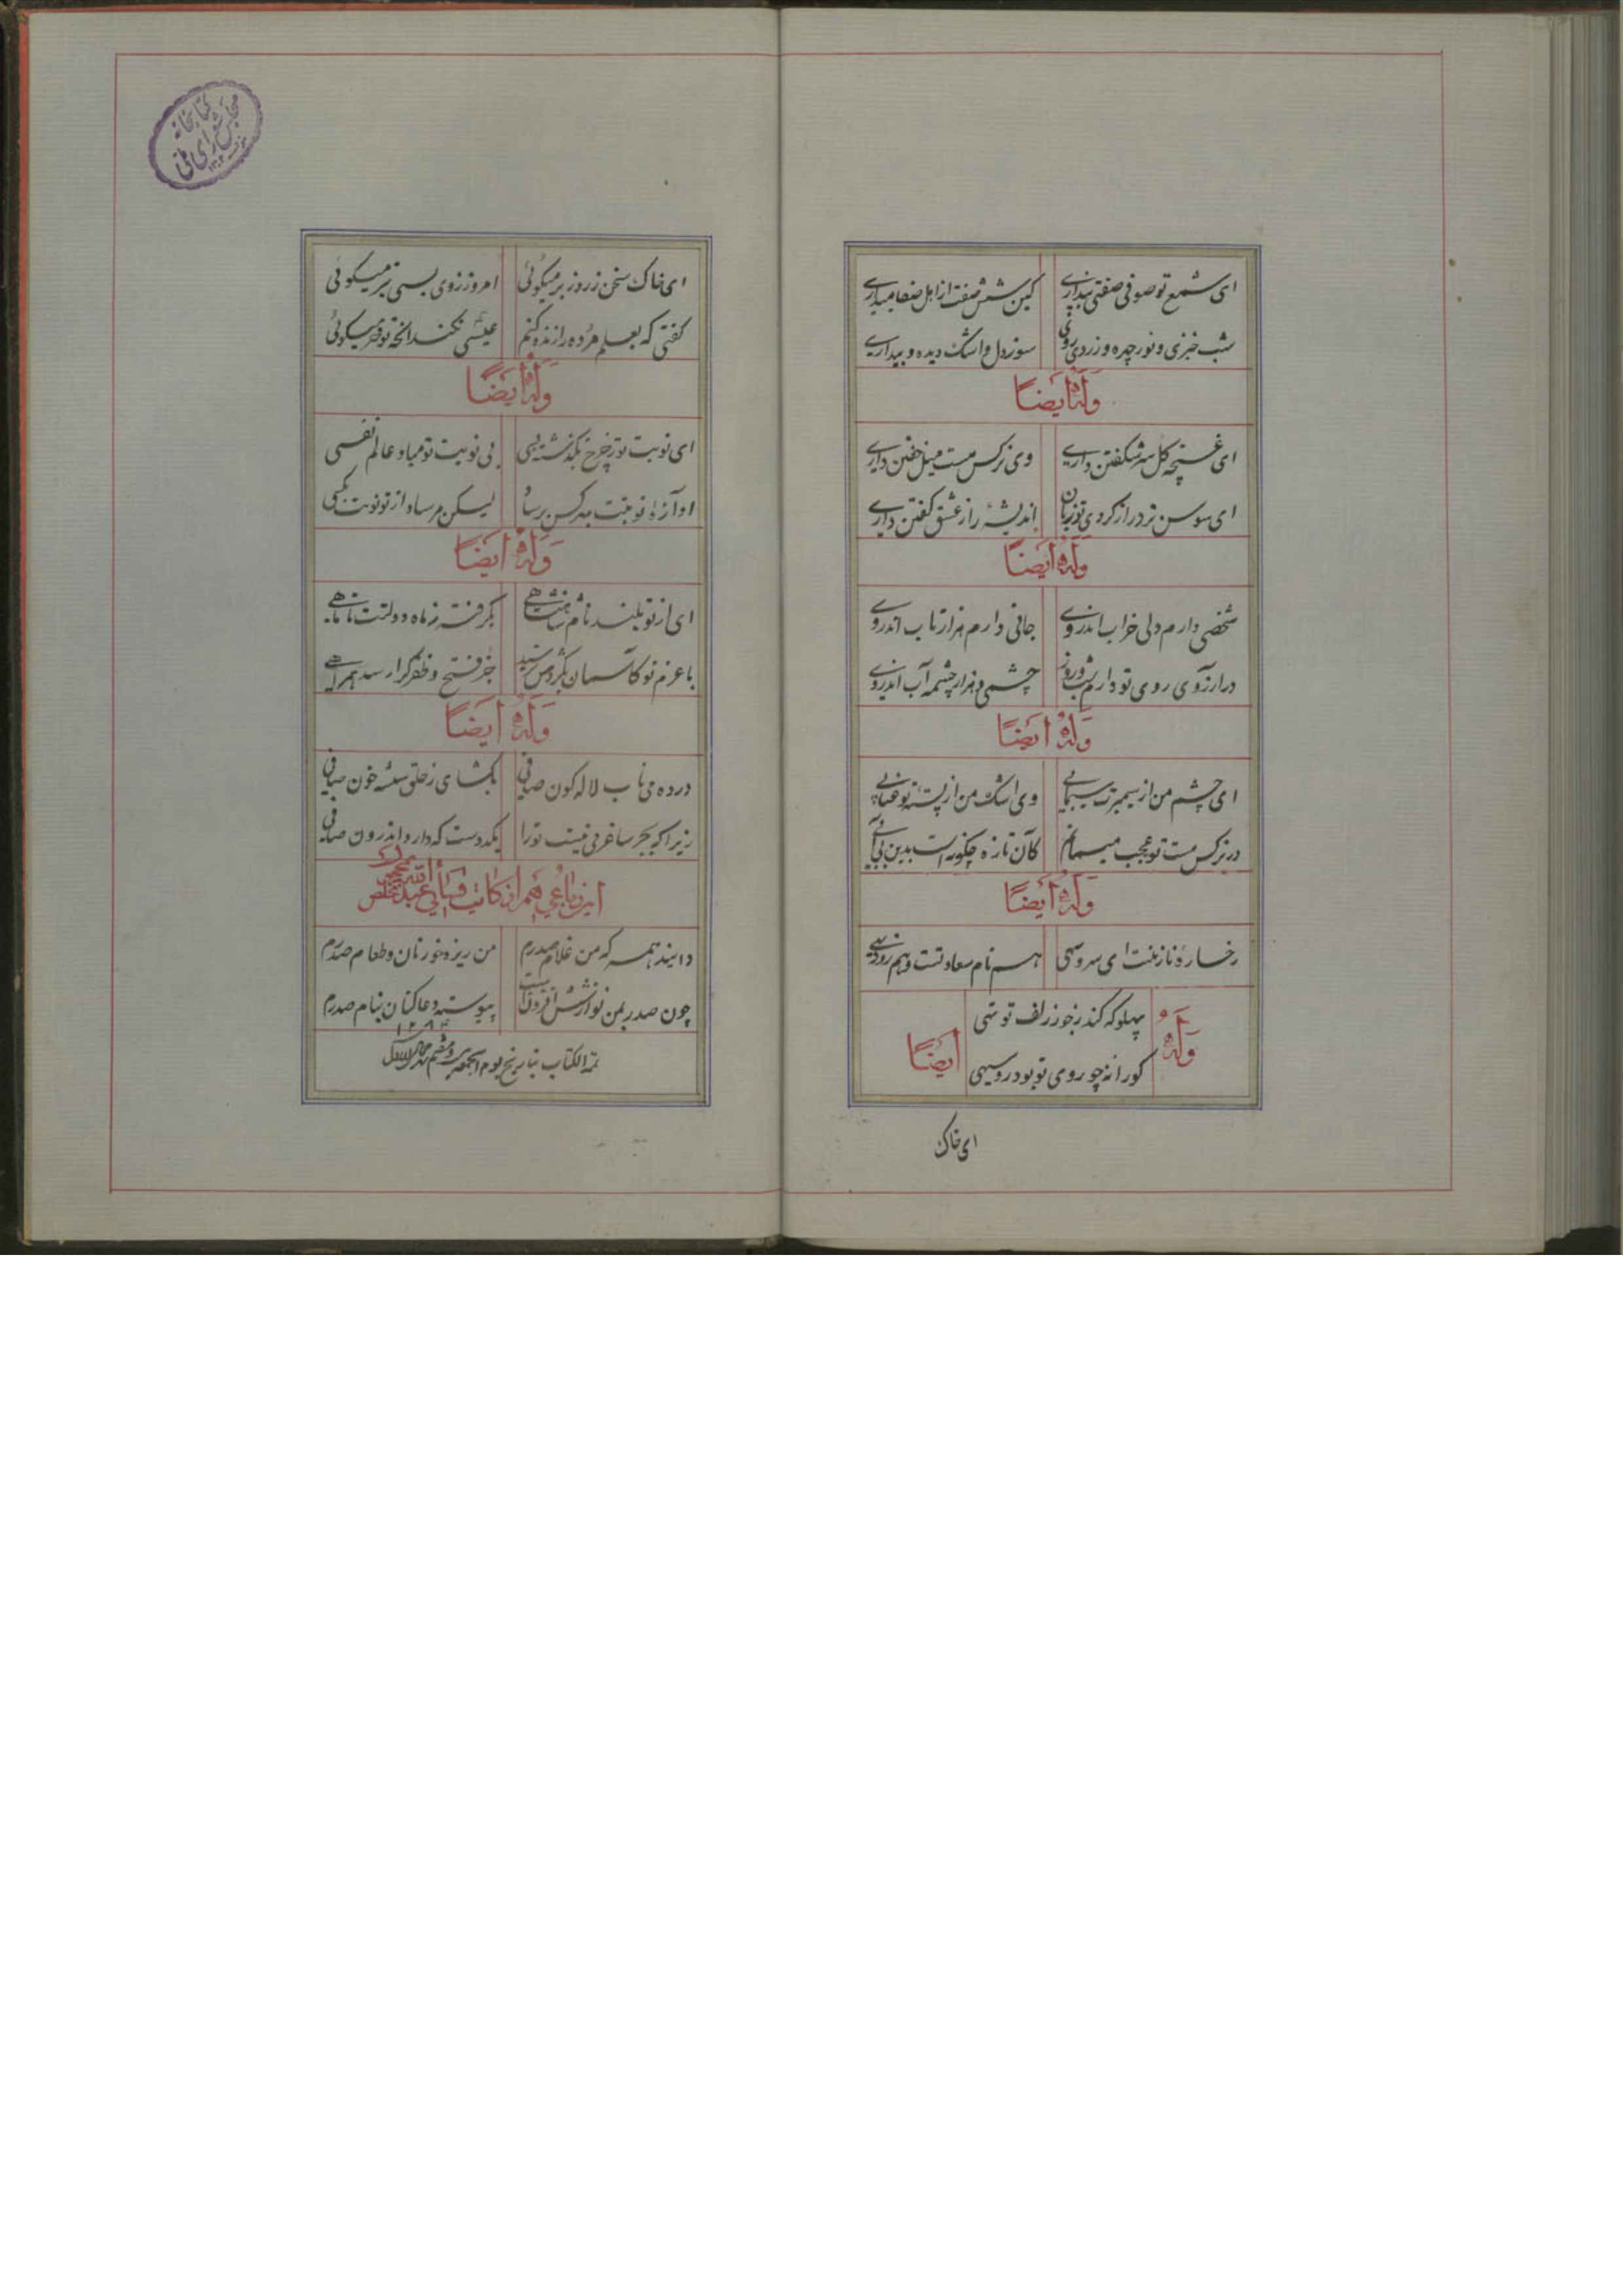 ای شمع تو صوفی صفتی پنداری
کین شش صفت از اهل صفا میداری
شب خیزی و نور چهره و زردی روی
سوز دل و اشک دیده و بیداری
وله ایضا
ای غنچه گل سر شکفتن داری
وی نرکس مست میل خفتن داری
ای سوسن تر دراز کردی تو زبان
اندیشهٔ راز عشق گفتن داری
وله ایضا
شخصی دارم دلی خراب اندر وی
جانی دارم هزار تاب اندر وی
در ارزوی روی تو دارم شب و روز
چشمی و هزار چشمه آب اندر وی
وله ایضا
ای چشم من از سیمبرت سیمابی
وی اشک من از پستهٔ تو عنابی
در نرکس مست تو عجب میمانم
کان تازه چگونه است بدین بی آبی
وله ایضا
رخسارهٔ نازنینت ای سرو سهی
هم نام سعادتست و هم روز بهی
وله
پهلو که کند ز خود ز لف تو تهی
کورا نه چو روی تو بود رو سیهی
ایضا
ای خاک
کتابخانه
مجلس شورای ملی
ای خاک سخن ز روز بر میکوئی
امروز ز روی بستی تر میکوئی
کفتی که بعلم مرده را زنده کنم
عیسی نکند انچه تو خر میکوئی
وله ایضا
ای نوبت تو ز چرخ بگذشته بسی
بی نوبت تو مباد عالم نفسی
اوازهٔ نوبتت بهر کس برساد
لیکن مرساد از تو نوبت بکسی
وله ایضا
ای از تو بلند نام شاهنشاهی
بکرفته ز ماه دولتت تا ماهی
با عزم تو کاسمان بگردش نرسد
جز فتح و ظفر کرا رسد همراهی
وله ایضا
در ده می ناب لاله کون صافی
بکشای ز حلق شیشه خون صافی
زیرا که بجز ساغر می نیست تو را
یکدوست که دارد اندرون صافی
این رباعی هم از کاتب
دانید همه که من غلام صدرم
من ریزه خور نان و طعام صدرم
چون صدر بمن نوازشش افزونست
پیوسته دعا کنان بنام صدرم
تمة الکتاب بتاریخ یوم الجمعه